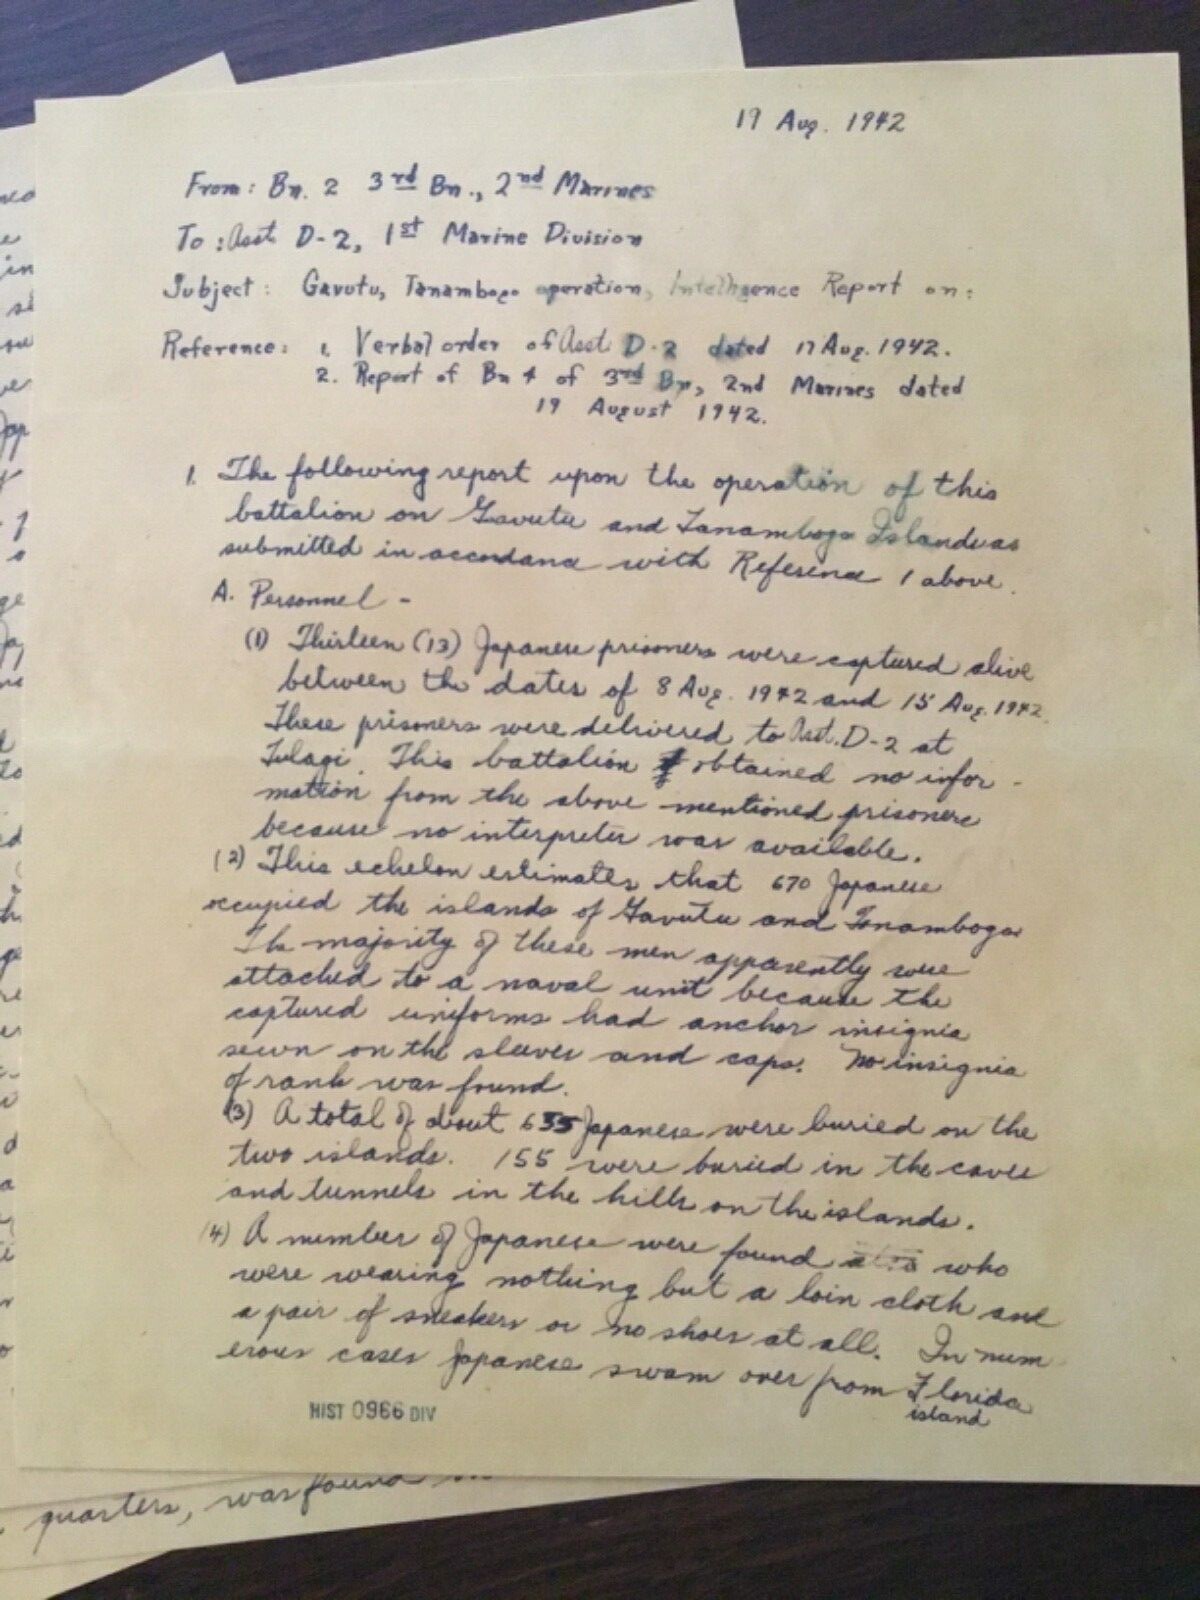 19 Aug. 1942
From: Bn. 2 3rd Bn., 2nd Marines
To: Asst. D-2, 1st Marine Division
Subject: Gavutu, Tanambogo operation, Intelligence Report on:
Reference: 1. Verbal order of Asst D-2 dated 17 Aug. 1942.
2. Report of Bn 4 of 3rd Bn, 2nd Marines dated
19 August 1942.
1. The following report upon the operation of this
battalion on Gavutu and Tanambogo Islands as
submitted in accordance with Reference 1 above.
A. Personnel -
(1) Thirteen (13) Japanese prisoners were captured alive
between the dates of 8 Aug. 1942 and 15 Aug. 1942.
These prisoners were delivered to Asst. D-2 at
Tulagi. This battalion obtained no infor-
mation from the above mentioned prisoners
because no interpreter was available.
(2) This echelon estimates that 670 Japanese
occupied the islands of Gavutu and Tanambogo
The majority of these men apparently were
attached to a naval unit because the
captured uniforms had anchor insignia
sewn on the sleeves and caps. No insignia
of rank was found.
(3) A total of about 635 Japanese were buried on the
two islands. 155 were buried in the caves
and tunnels in the hills on the islands.
(4) A number of Japanese were found who
were wearing nothing but a loin cloth and
a pair of sneakers or no shoes at all. In num
erous cases Japanese swam over from Florida
island
HIST 0966 DIV
quarters, was found